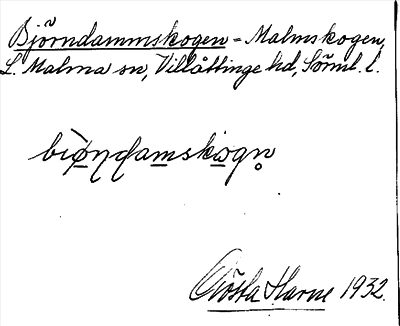 Björndammskogen = Malmskogen,
L. Malma sn, Villåttinge hd, Sörml. l.
biø̀ɳɖamskɷgn̥
Gösta Harne 1932.